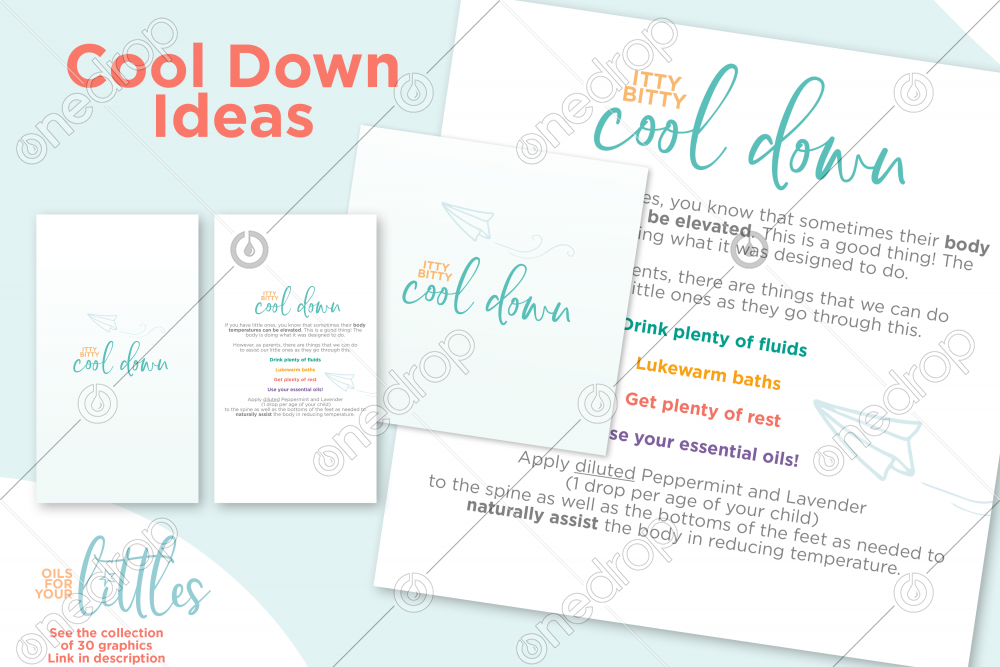 Cool Down
Ideas
ITTY
BITTY
cool down
ITTY
BITTY
cool down
If you have little ones, you know that sometimes their body
temperatures can be elevated. This is a good thing! The
body is doing what it was designed to do.
However, as parents, there are things that we can do
to assist our little ones as they go through this.
Drink plenty of fluids
Lukewarm baths
Get plenty of rest
Use your essential oils!
Apply diluted Peppermint and Lavender
(1 drop per age of your child)
to the spine as well as the bottoms of the feet as needed to
naturally assist the body in reducing temperature.
ITTY
BITTY
cool down
ITTY
BITTY
cool down
es, you know that sometimes their body
be elevated. This is a good thing! The
ing what it was designed to do.
ents, there are things that we can do
ittle ones as they go through this.
Drink plenty of fluids
Lukewarm baths
Get plenty of rest
se your essential oils!
Apply diluted Peppermint and Lavender
(1 drop per age of your child)
to the spine as well as the bottoms of the feet as needed to
naturally assist the body in reducing temperature.
OILS
FOR
YOUR
littles
See the collection
of 30 graphics
Link in description
onedrop